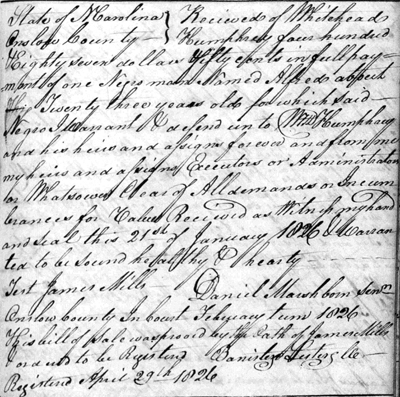 State of N Carolina } Recieved of Whitehead
Onslow County } Humphrey four hundred
Eighty seven dollars fifty cents in full pay-
ment of one Negro man Named Alfred about
Twenty three years old for which said
Negro I Warrant & defend unto Whd Humphrey
and his heirs and assigns forever and from me
my heirs and assigns Executors or Administrators
or Whatsower Clear of All demands or Incum
berances for Value Recieved as Witness my hand
and Seal this 21st of January 1826 & Warran
ted to be sound healthy & hearty
Test James Mills
Daniel Mashborn
Onslow County In Court February term 1826
this bill of Sale was proved by the Oath of James Mills
ordered to be Registerd
Registerd April 29th 1826